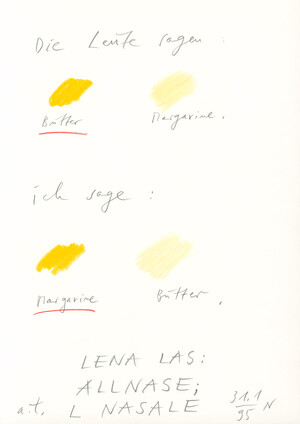 Die Leute sagen :
Butter Margarine .
ich sage :
Margarine Butter .
LENA LAS :
ALLNASE ;
a.t. L NASALE 31.1/95 N